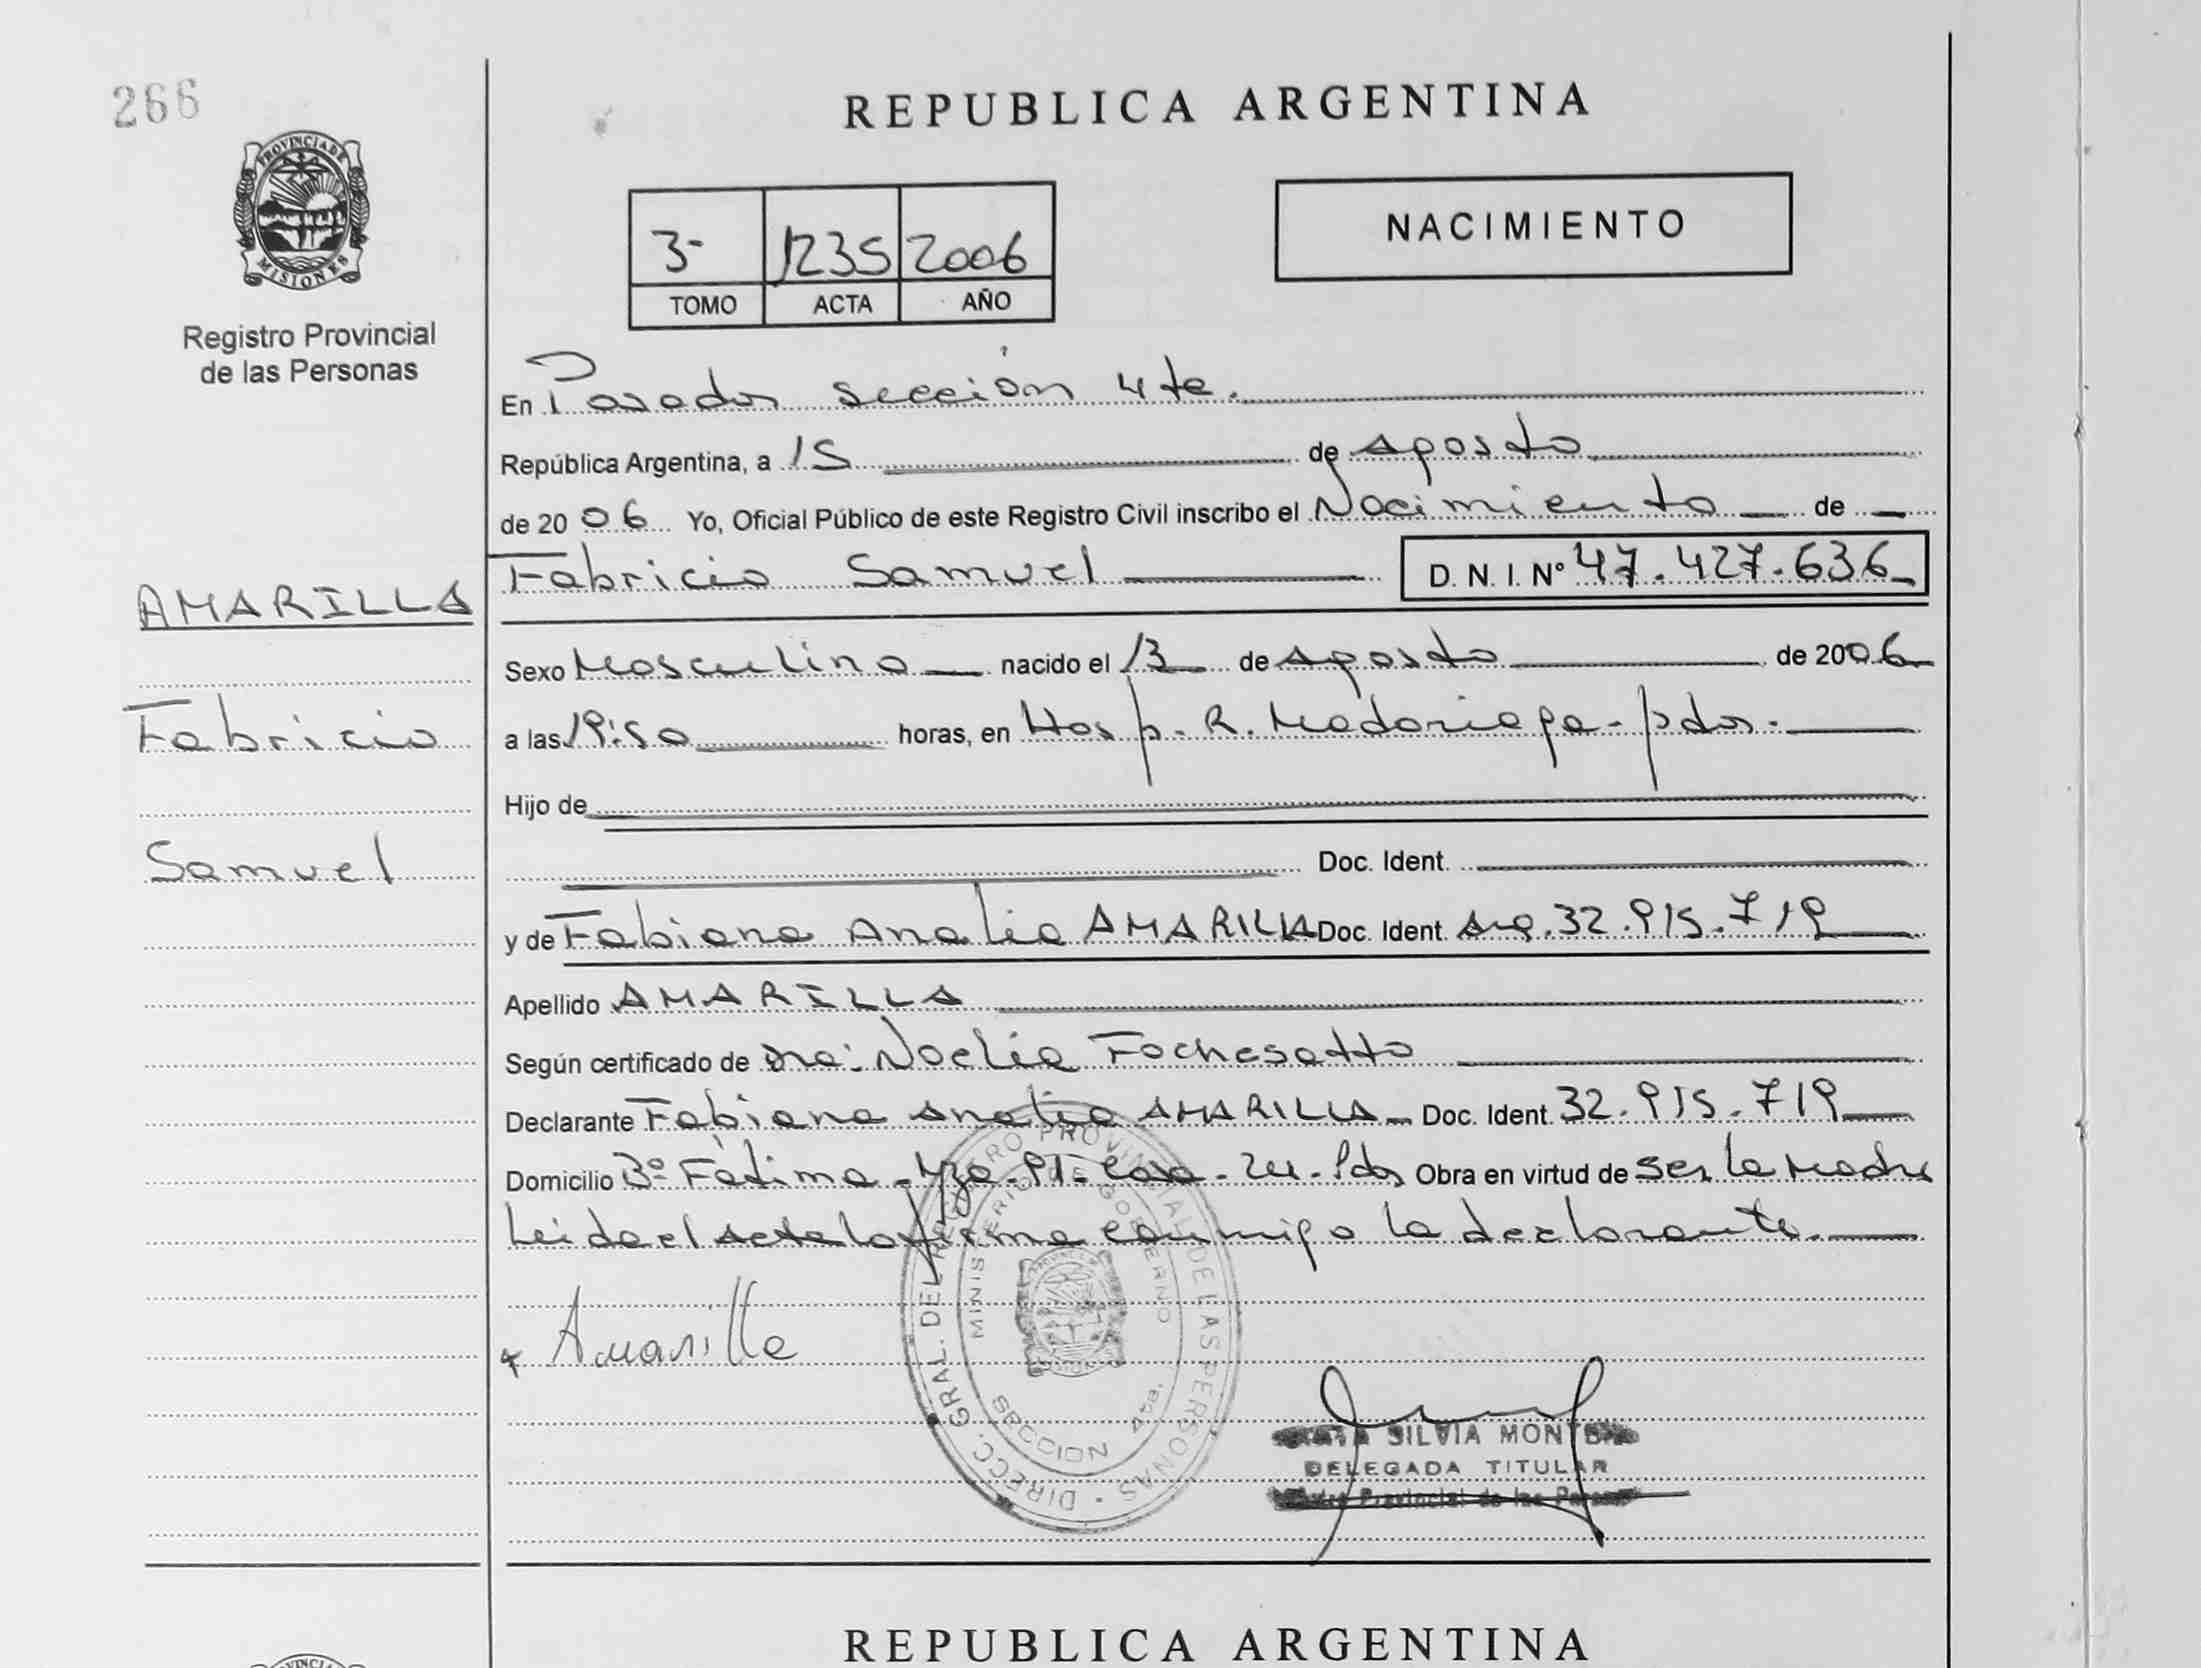 266
REPUBLICA ARGENTINA
PROVINCIA DE MISIONES
Registro Provincial
de las Personas
3- 1235 2006
TOMO ACTA AÑO
NACIMIENTO
En Posadas sección 4ta.
República Argentina, a 15 de Agosto
de 2006 Yo, Oficial Público de este Registro Civil inscribo el Nacimiento de
Fabricio Samuel D.N.I. Nº 47.427.636
AMARILLA
Fabricio
Samuel
Sexo Masculino nacido el 13 de Agosto de 2006
a las 19:50 horas, en Hosp. R. Madariaga - Pdas.
Hijo de
Doc. Ident.
y de Fabiana Analia AMARILLA Doc. Ident. Arg. 32.915.719
Apellido AMARILLA
Según certificado de Dra: Noelia Fochesatto
Declarante Fabiana Analia AMARILLA Doc. Ident. 32.915.719
Domicilio Bº Fátima - Mza - 91 - Casa - 24 - Pdas Obra en virtud de ser la Madre
Leida el Acta la firma conmigo la declarante.
Amarilla
DIRECC. GRAL. DEL REGISTRO PROVINCIAL DE LAS PERSONAS
MINISTERIO DE GOBIERNO
SECCION 4ta.
SILVIA
DELEGADA TITULAR
Provincial de las
REPUBLICA ARGENTINA